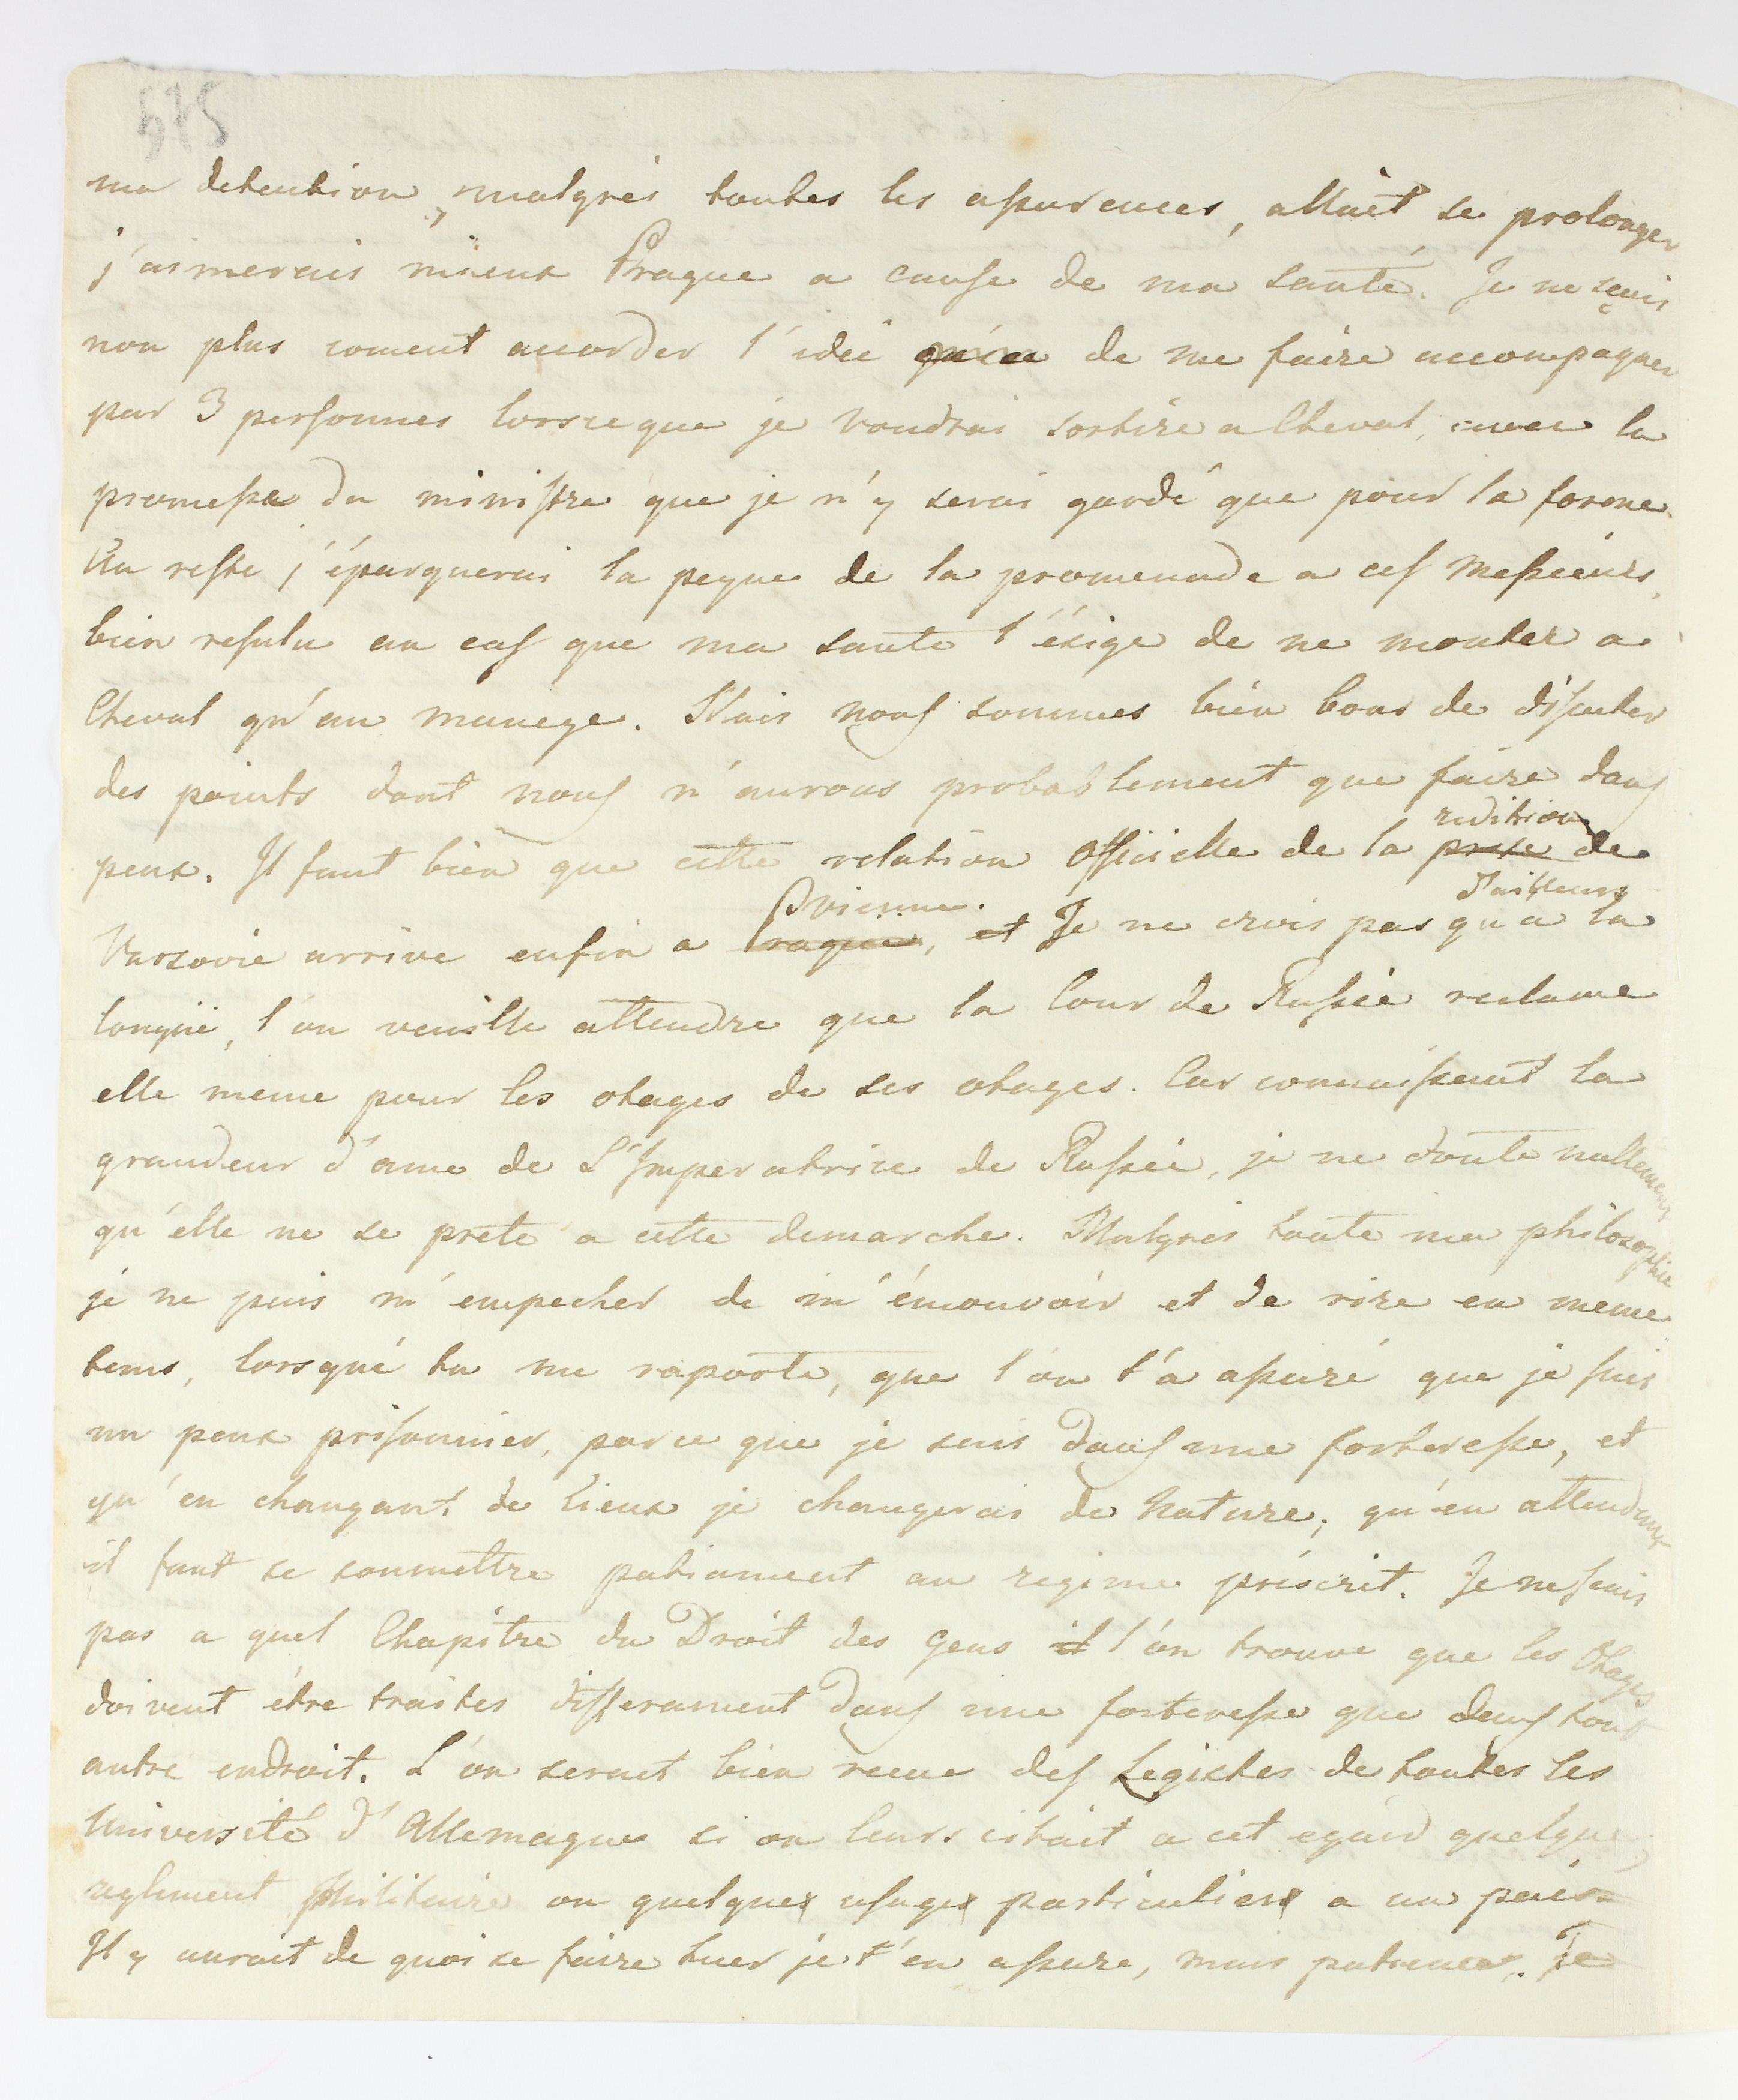 575
ma detention, malgrés toutes les assurences, allait se prolonger
j'aimerais mieux Prague a cause de ma santé. Je ne sçais
non plus coment accorder l'idée qu'en de me faire accompagner
par 3 personnes lorsceque je voudrai sortire a Cheval, avec la
promesse du ministre que je n'y serai gardé que pour la forme.
Au reste j'épargnerai la peyne de la promenade a ces Messieurs,
bien resulu au cas que ma sante l'éxige de ne monter a
Cheval qu'au manege. Mais nous sommes bien bons de disputer
des points dont nous n'aurons probablement que faire dans
redition
peux. Il faut bien que cette relation Officielle de la prise de
Vienne. d'ailleurs
Varsovie arrive enfin a Prague, et Je ne crois pas qu'a la
longue, l'on veuille attendre que la Cour de Russie reclame
elle meme pour les otages de ses otages. Car connaissant la
grandeur d'ame de L'Imperatrice de Russie, je ne doute nullement
qu'elle ne se prete a cette demarche. Malgrés toute ma philosophie
je ne puis m'empecher de m'émouvoir et de rire en meme
tems, lorsque tu me raporte, que l'on t'a assuré que je suis
un peux prisonnier, parce que je suis dans une forteresse, et
qu'en changant de lieux je changerais de nature; qu'en attendant
il faut se soumettre patiament au regime préscrit. Je ne sais
pas a quel Chapitre du Droit des Gens il l'on trouve que les Otages
doivent étre traites differament dans une forteresse que dans tout
autre endroit. L'on serait bien recue des Legistes de toutes les
Université d'Allemagne si on leurs citait a cet egard quelque
reglement Militaire ou quelques usages particuliers a un païs.
Il y aurait de quoi se faire tuer je t'en assure, mais patience. Je